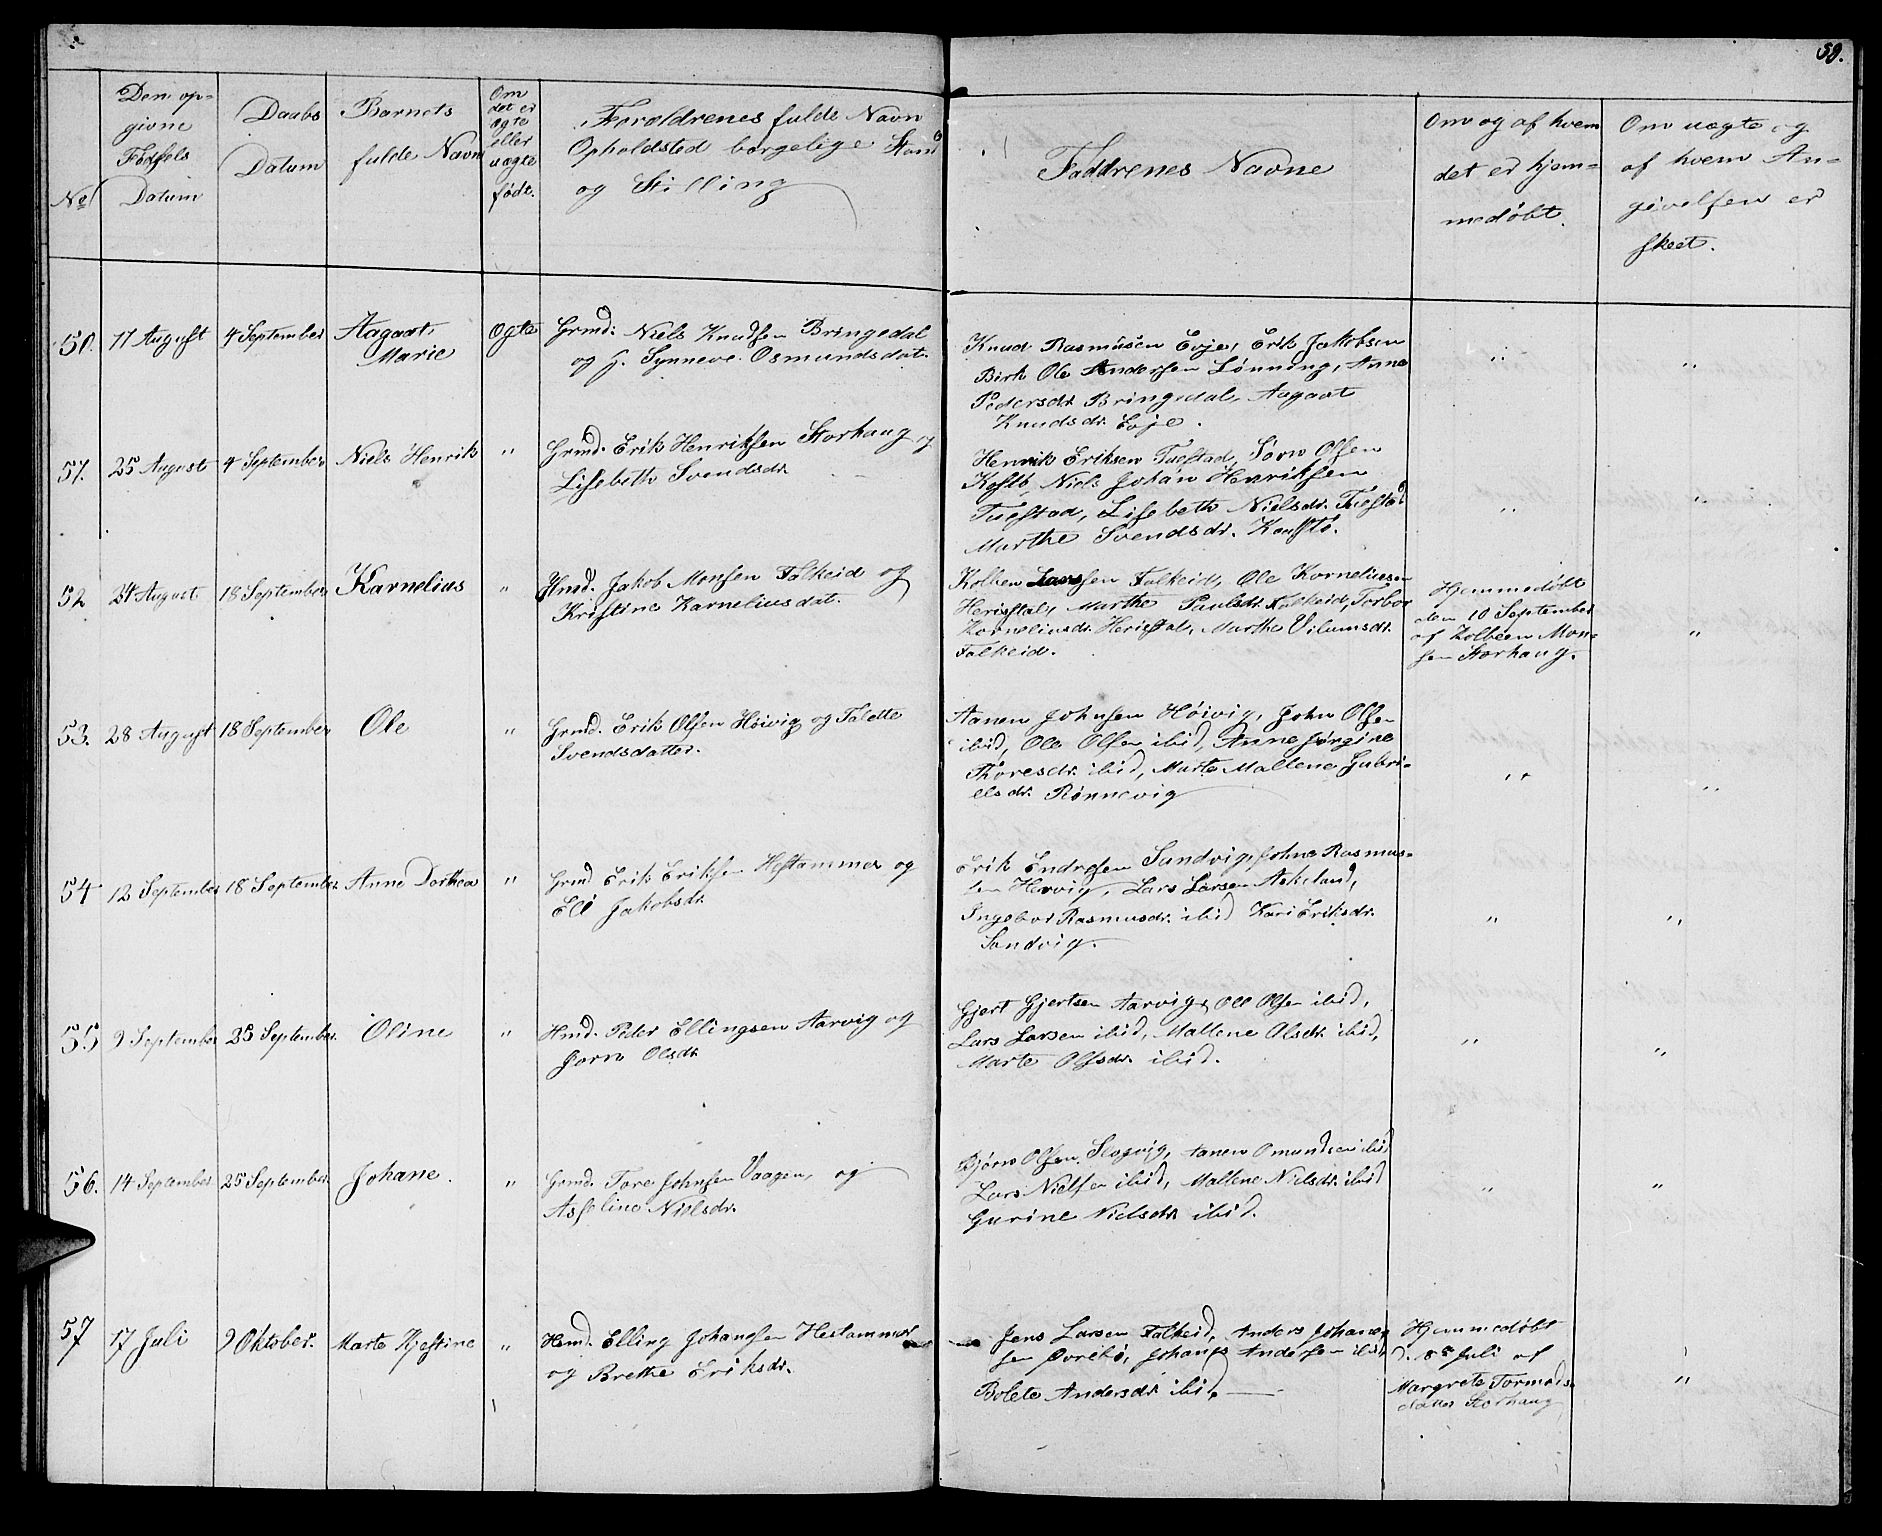 59.
No
Den op-
givne
Fødsels
Datum
Daabs
Datum
Barnets
fulde Navn
Om
det er
ægte
eller
uægte
føde.
Foraldrenes fulde Navn
Opholdsted borgelige Stand
og Stilling
Faddrenes Navne
Om og af hvem
det er hjem-
medøbt.
Om uægte og
af hvem An-
givelsen er
skeet.
50. 17 August 4 September Aagaat Ogte Grmd: Niels Knudsen Bringedal
Marie og H. Synneve Osmundsdat.
Knud Rasmusen Evje, Erik Jakobsen
Birk Ole Andersen Lønning, Anne
Pedersdr. Bringedal, Aagaat
Knudsdr. Evje.
51. 25 August 4 September Niels Henrik " Grmd. Erik Henriksen Storhaug og
Lisebeth Svendsdr.
Henrik Eriksen Tuestad, Sørn Olsen
Kostb, Niels Johan Henriksen
Tuestad, Lisebeth Nielsdr. Tuestad
Marthe Svendsdr.
52 24 August 18 September Karnelius " Hmd. Jakob Monsen Falkeid og
Kristine Karneliusdat.
Kolben Larssen Falkeid, Ole Korneliusen
Heristal, Marthe Paulsdr. Falkeid, Torbor
Korneliusdr. Heristal, Marthe Vilumsdr.
Falkeid.
Hjemmedøbt
den 10 September
af Kolbeen Mon-
sen Storhaug.
53. 28 August 18 September Ole " Grmd. Erik Olsen Høivig og Talette
Svendsdatter.
Aanen Johnsen Høivig, John Olsen
ibid, Ole Olsen ibid, Anne Jørgine
Thoresdr. ibid, Marte Mallene Gabri-
elsdr. Rønnevig
54 12 September 18 September Anne Dorthea " Grmd Erik Eriksen Hestammer og
Eli Jakobsdr.
Erik Endresen Sandvig, Johne Rasmus-
sen Hervig, Lars Larsen Askeland,
Ingebor Rasmusdr. ibid Kari Eriksdr.
Sandvig.
55 9 September 25 September Oline " Hmd. Peder Ellingsen Aarvig og
Jorn Olsdr.
Gjert Gjertsen Aarvig, Ole Olsen ibid,
Lars Larsen ibid, Mallene Olsdr. ibid,
Marte Olsdr. ibid.
56. 14 September 25 September Johane. " Grmd. Tore Johnsen Vaagen, og
Asseline Nielsdr.
Bjørn Olsen Slogvig, Aanen Omundsen ibid
Lars Nielsen ibid, Mallene Nielsdr. ibid
Gurine Nielsdr. ibid.
57 17 Juli 9 Oktober. Marte Kjestine " Hmd. Elling Johansen Hestammer
og Brethe Eriksdr.
Jens Larsen Falkeid, Anders Johane-
sen Øvrebø, Johanes Andersen ibid,
Bolete Andersdr. ibid.
Hjemmedøbt
d. 18 Juli af
Margrete Tormods-
datter Storhaug